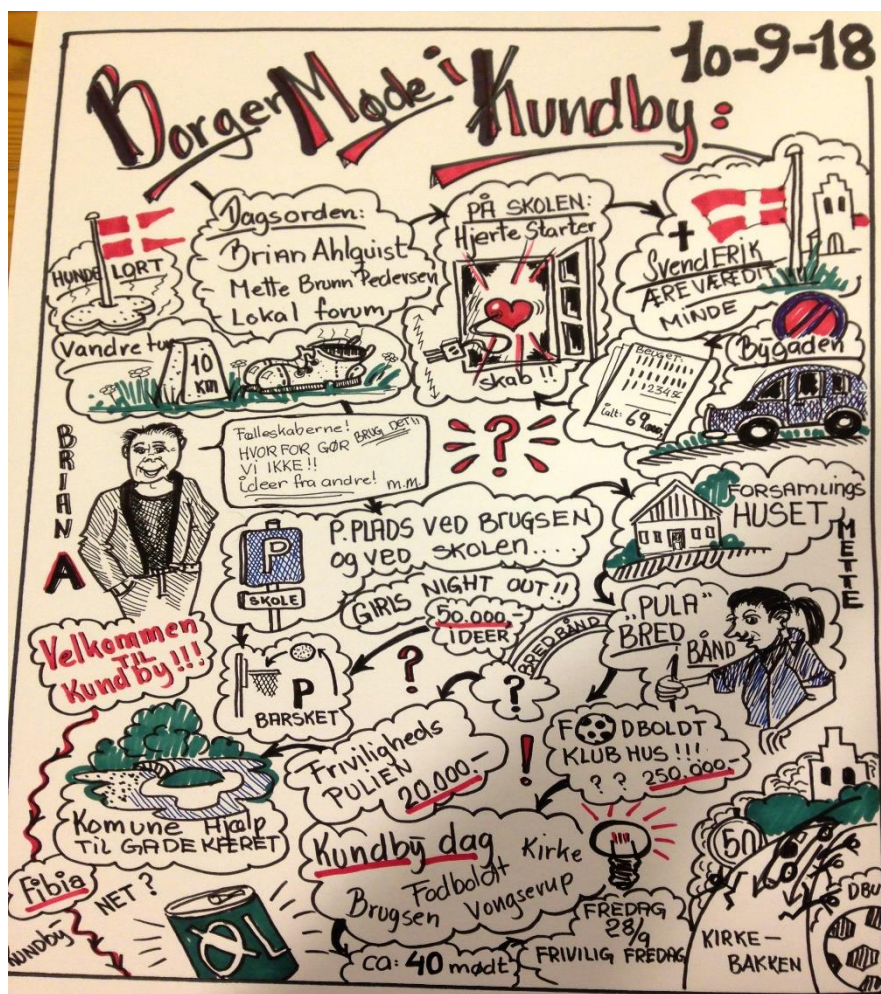 10-9-18
Borger Møde i Kundby:
HUNDE LORT
Dagsorden:
Brian Ahlquist
Mette Brunn Pedersen
Lokal forum
PÅ SKOLEN:
Hjerte Starter
skab !!
Svend ERIK
ÆRE VÆRE DIT
MINDE
Vandre tur
10
KM
Beuger:
1234
ialt: 69
Bygaden
BRIAN
A
Fælleskaberne!
BRUG DET!!
HVORFOR GØR
VI IKKE!!
ideer fra andre! m.m.
?
P
SKOLE
P.PLADS VED BRUGSEN
og VED SKOLEN....
FORSAMLINGS
HUSET
METTE
GIRLS NIGHT OUT!!
50.000.-
IDEER
BRED BÅND
?
"PULA"
BRED
BÅND
Velkommen
TIL
Kundby!!!
P
BARSKET
?
Friviligheds
PULJEN
20.000.-
!
FODBOLDT
KLUB HUS!!!
? ? 250.000.-
Komune Hjælp
TIL GADEKÆRET
Kundby dag
Kirke
Fodboldt
Brugsen Vongserup
50
Fibia
NET?
KUNDBY
ØL
ca: 40 mødt
FREDAG
28/9
FRIVILIG FREDAG
KIRKE-
BAKKEN
DBU